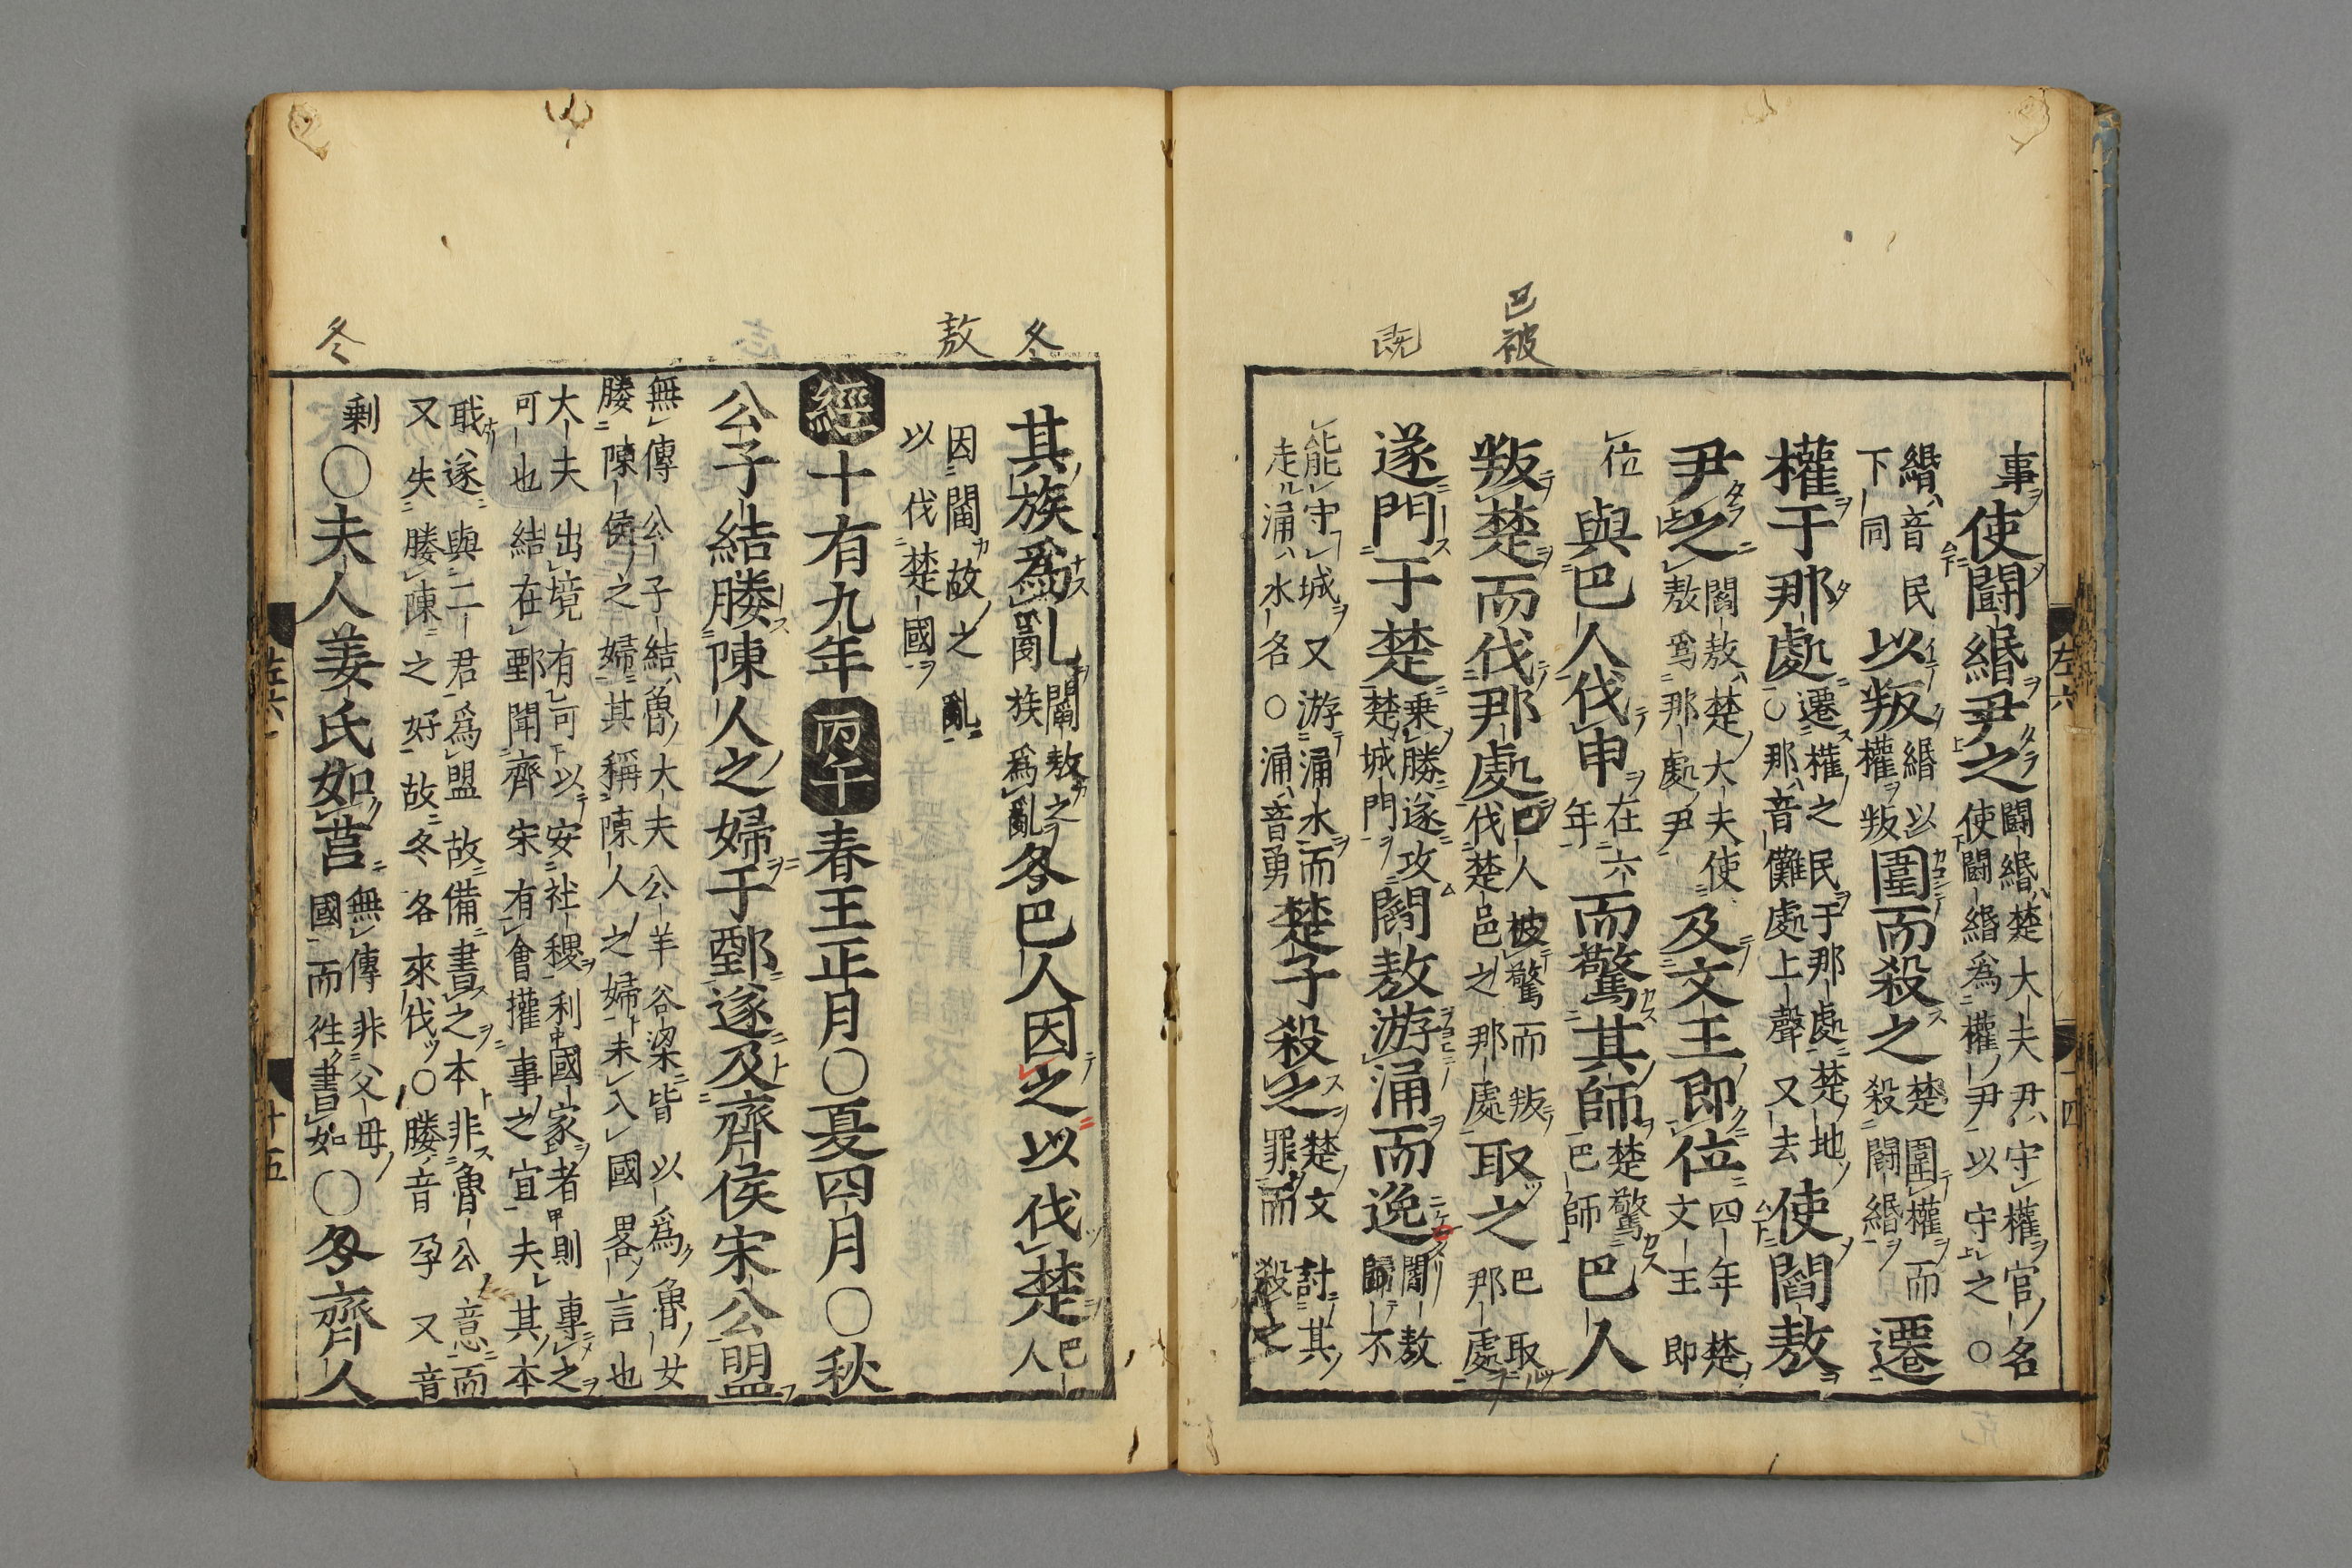 事使鬭緡尹之
鬭緡楚大夫尹守權官名
使鬭緡爲權尹以守之○
緡音民
下同
以叛
緡以
權叛
圍而殺之
楚圍權而
殺鬭緡
遷
權于那處
遷權之民于那處楚地
○那音儺處上聲又去
使閻敖
尹之
閻敖楚大夫使
敖爲那處尹
及文王即位
四年楚
文王即
位
與巴人伐申
在六
年
而驚其師
楚驚
巴師
巴人
巴被
叛楚而伐那處
巴人被驚而叛
伐楚邑之那處
取之
巴取
那處
既
遂門于楚
乗勝遂攻
楚城門
閻敖游涌而逸
閻敖
歸不
能守城又游涌水而
走涌水名○涌音勇
楚子殺之
楚文討其
罪而殺之
左六
十四
冬
其族爲亂
閻敖之
族爲亂
冬巴人因之以伐楚
巴
人
敖
因閻故之亂
以伐楚國
經十有九年丙午春王正月○夏四月○秋
公子結媵陳人之婦于鄄遂及齊侯宋公盟
無傳公子結魯大夫公羊谷梁皆以爲魯女
媵陳侯之婦其稱陳人之婦未入國畧言也
大夫出境有可以安社稷利國家者則專之
可也結在鄄聞齊宋有會權事之宜夫其本
職遂與二君爲盟故備書之本非魯公意而
又失媵陳之好故冬各來伐○媵音孕又音
冬
剩○夫人姜氏如莒
無傳非父母
國而往書如
○冬齊人
左六
十五